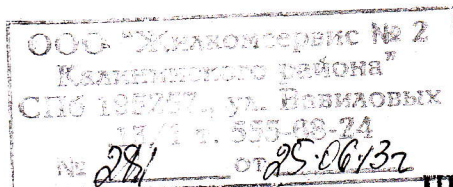 ООО "Жилкомсервис № 2
Калининского района"
СПб 195257, ул. Вавиловых
13/1 т. 555-08-24
№ 281 от 25.06.13г